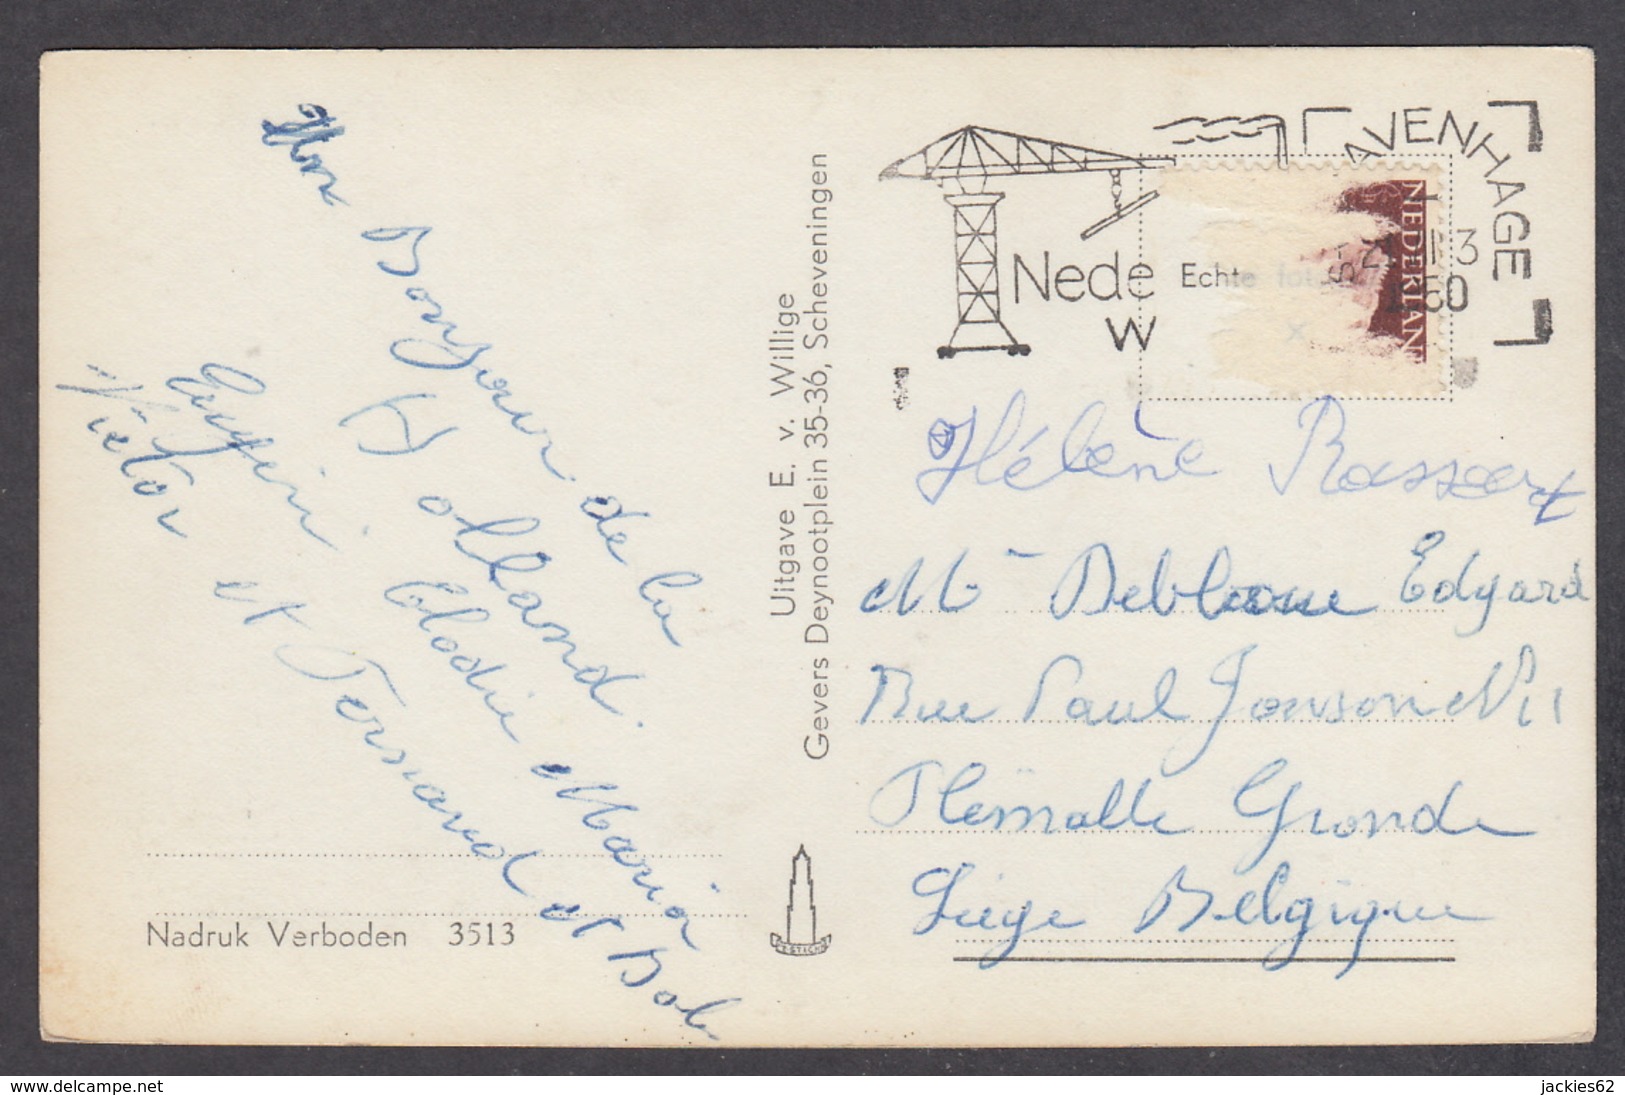 Un Bonjour de la
Holland.
Elodie Maria
Eugénie
Victor
et Fernand et Bob
Nadruk Verboden 3513
Uitgave E. v. Willige
Gevers Deynootplein 35-36, Scheveningen
AVENHAGE
Nede
W
Echte foto
NEDERLAN
Hélène Rassart
Mr Debloue Edgard
Rue Paul Jonson N 11
Flémalle Grande
Liège Belgique
www.delcampe.net
jackies62